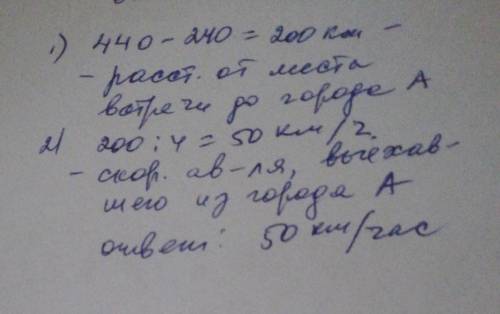 1) 440 - 240 = 200 км -
- расст. от места
встречи до города А
2) 200 : 4 = 50 км/ч.
- скор. ав-ля, выехав-
шего из города А
ответ: 50 км/час